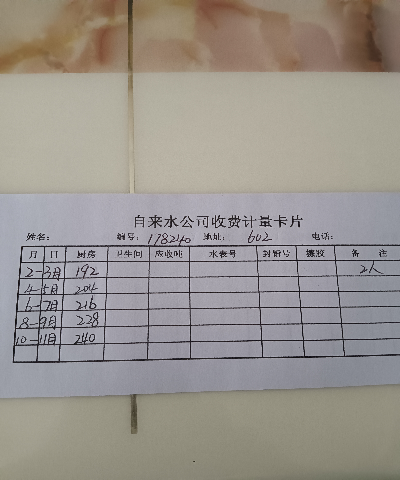 自来水公司收费计量卡片
姓名： 编号：178240 地址：602 电话：
月 日 厨房 卫生间 应收吨 水表号 封铅号 橡胶 备 注
2-3月 192 2人
4-5月 204
6-7月 216
8-9月 228
10-11月 240